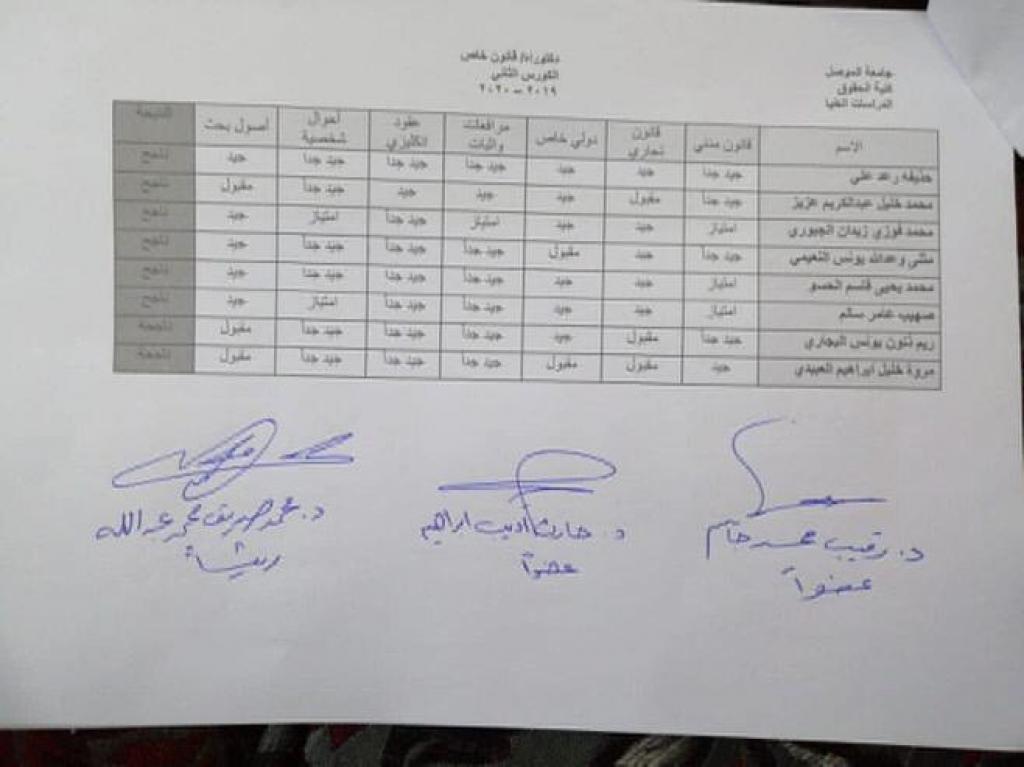 جامعة الموصل
كلية الحقوق
الدراسات العليا
دكتوراه/ قانون خاص
الكورس الثاني
٢٠١٩ - ٢٠٢٠
الاسم قانون مدني قانون تجاري دولي خاص مرافعات واثبات عقود انكليزي أحوال شخصية أصول بحث النتيجة
حذيفة رعد علي جيد جداً جيد جيد جيد جداً جيد جداً جيد جداً جيد ناجح
محمد خليل عبدالكريم عزيز جيد جداً مقبول جيد جيد جيد جيد جداً مقبول ناجح
محمد فوزي زيدان الجبوري امتياز جيد جيد امتياز جيد جداً امتياز جيد ناجح
مثنى وعدالله يونس النعيمي جيد جداً جيد مقبول جيد جداً جيد جداً جيد جداً جيد ناجح
محمد يحيى قاسم الحسو امتياز جيد جيد جيد جداً جيد جداً جيد جداً جيد ناجح
صهيب عامر سالم امتياز جيد جيد جيد جداً جيد جداً امتياز جيد ناجح
ريم ذنون يونس البجاري جيد جداً مقبول جيد جيد جداً جيد جداً جيد جداً مقبول ناجحة
مروة خليل ابراهيم العبيدي جيد مقبول مقبول جيد جداً جيد جداً جيد جداً مقبول ناجحة
د. رقيب محمد جاسم
عضواً
د. حارث اديب ابراهيم
عضواً
د. محمد صديق محمد عبدالله
رئيساً